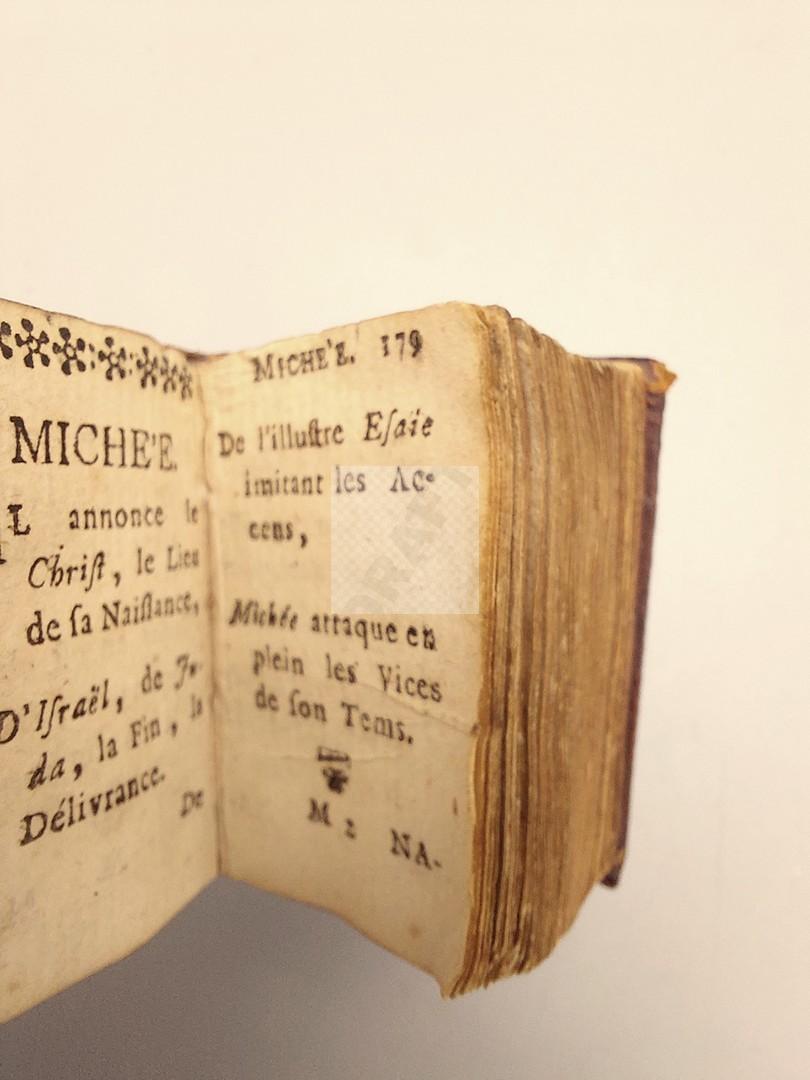 MICHE'E.
IL annonce le
Chriſt, le Lieu
de ſa Naiſſance,
D'Iſraël, de Ju-
da, la Fin, la
Délivrance.
De
MICHE'E. 179
De l'illuſtre Eſaïe
imitant les Ac-
cens,
Michée attaque en
plein les Vices
de ſon Tems.
M 2 NA-
DRAFT